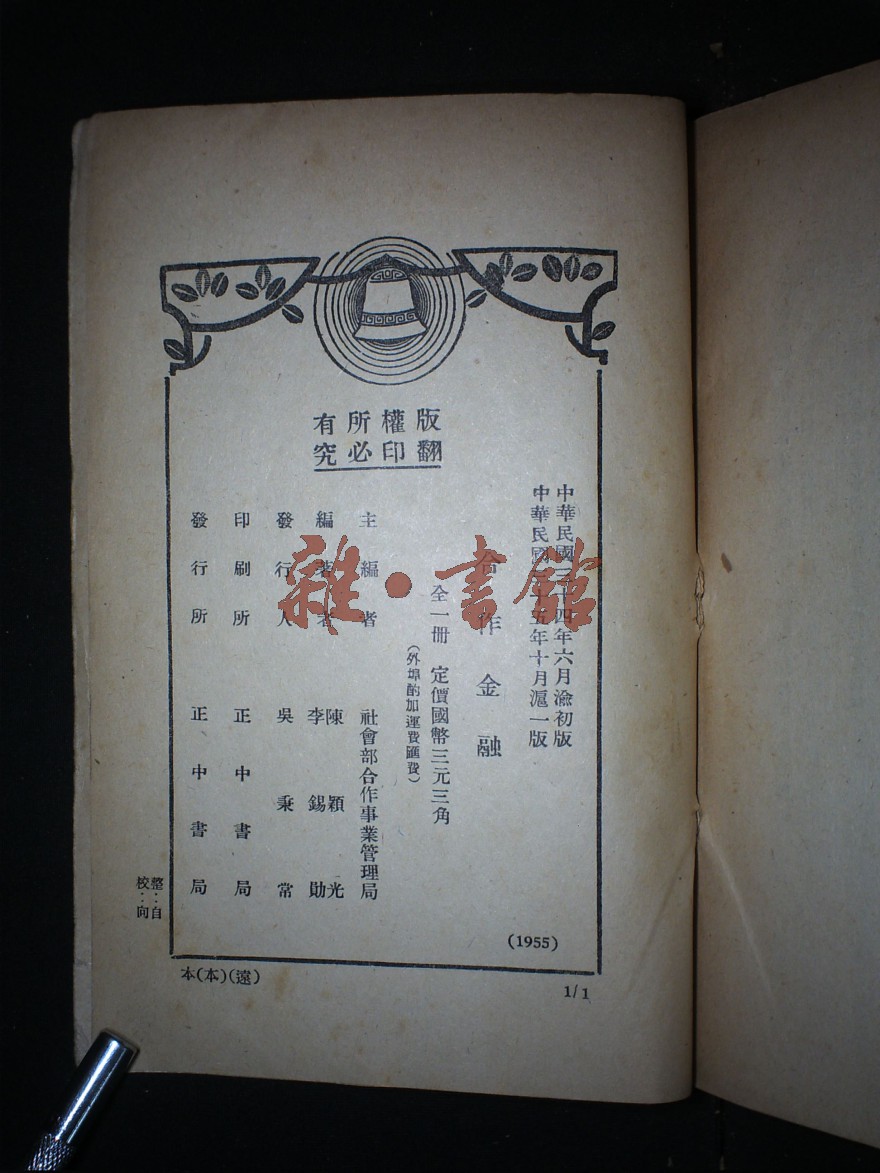 版權所有
翻印必究
中華民國三十四年六月渝初版
中華民國三十五年十月滬一版
合作金融
全一冊 定價國幣三元三角
(外埠酌加運費匯費)
主編者 社會部合作事業管理局
編著者 陳穎光 李錫勛
發行人 吳秉常
印刷所 正中書局
發行所 正中書局
(1955)
整:自
校:向
本(本)(遠)
1/1
雜·書館